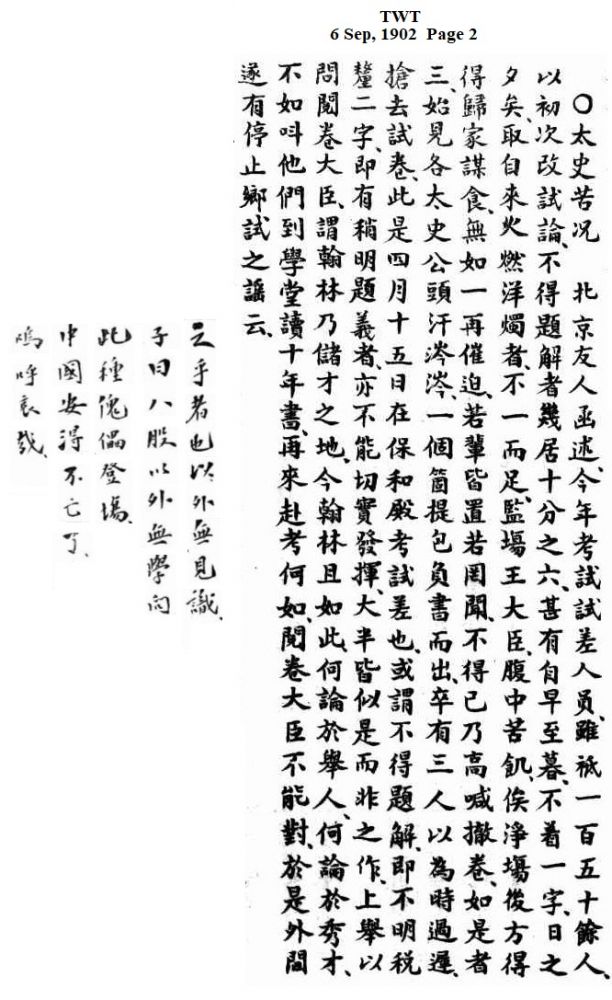 TWT
6 Sep, 1902 Page 2
○太史苦况　北京友人函述、今年考試試差人員、雖祗一百五十餘人、
以初次改試論、不得題解者幾居十分之六、甚有自早至暮、不着一字、日之
夕矣、取自來火燃洋燭者、不一而足、監塲王大臣、腹中苦飢、俟淨塲後方得
得歸家謀食、無如一再催迫、若輩皆置若罔聞、不得已乃高喊撤卷、如是者
三、始見各太史公頭汗涔涔、一個箇提包負書而出、卒有三人以為時過遲、
搶去試卷、此是四月十五日在保和殿考試差也、或謂不得題解、即不明税
釐二字、即有稍明題義者、亦不能切實發揮、大半皆似是而非之作、上舉以
問閱卷大臣、謂翰林乃儲才之地、今翰林且如此、何論於舉人、何論於秀才、
不如呌他們到學堂讀十年書、再來赴考何如、閱卷大臣不能對、於是外間
遂有停止鄉試之謡云、
之乎者也以外無見識、
子曰八股以外無學問
此種傀儡登塲、
中國安得不亡了、
嗚呼哀哉、